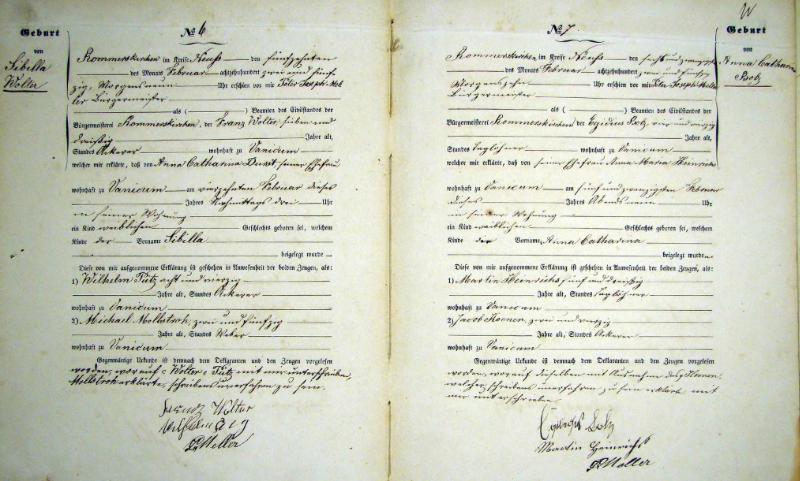 Geburt
von
Sibella
Wolter
No 6
Rommerskirchen im Kreise Neuß den fünfzehnten
des Monats Februar achtzehnhundert zwei und fünf
zig, Morgens neun Uhr erschien vor mir Peter Joseph
ler Bürgermeister
als ( ) Beamten des Civilstandes der
Bürgermeisterei Rommerskirchen, der Franz Wolter, sieben und
dreißig Jahre alt,
Standes Ackerer wohnhaft zu Vanicum
welcher mir erklärte, daß von Anna Catharina seiner Ehefrau
wohnhaft zu Vanicum am vierzehnten Februar dieses
Jahres Nachmittags drei Uhr
in seiner Wohnung
ein Kind weiblichen Geschlechts geboren sei, welchem
Kinde der Vorname Sibella
beigelegt wurde
Diese von mir aufgenommene Erklärung ist geschehen in Anwesenheit der beiden Zeugen, als:
1) Wilhelm Pütz acht und vierzig
Jahre alt, Standes Ackerer
wohnhaft zu Vanicum
2) Michael zwei und fünfzig
Jahre alt, Standes Weber
wohnhaft zu Vanicum
Gegenwärtige Urkunde ist demnach dem Deklaranten und den Zeugen vorgelesen
worden, worauf Wolter Pütz mit mir unterschrieben,
erklärte, schreibens unerfahren zu sein.
Franz Wolter
Wilhelm
Moller
No 7
Geburt
von
Anna Catharina
Rommerskirchen im Kreise Neuß den sechs und zwanzigsten
des Monats Februar achtzehnhundert zwei und fünfzig
Morgens zehn Uhr erschien vor mir Peter Joseph Moller
Bürgermeister
als ( ) Beamten des Civilstandes der
Bürgermeisterei Rommerskirchen der Egidius vier und
Jahre alt,
Standes Taglöhner wohnhaft zu Vanicum
welcher mir erklärte, daß von seiner Ehefrau Anna Maria
wohnhaft zu Vanicum am fünf und zwanzigsten Februar
dieses Jahres Abends neun Uhr
in seiner Wohnung
ein Kind weiblichen Geschlechts geboren sei, welchem
Kinde der Vorname Anna Catharina
beigelegt wurde
Diese von mir aufgenommene Erklärung ist geschehen in Anwesenheit der beiden Zeugen, als:
1) Martin Heinrichs fünf und dreißig
Jahre alt, Standes Taglöhner
wohnhaft zu Vanicum
2) Jacob zwei und
Jahre alt, Standes Ackerer
wohnhaft zu Vanicum
Gegenwärtige Urkunde ist demnach dem Deklaranten und den Zeugen vorgelesen
worden, worauf dieselben mit Ausnahme des
welcher schreibens unerfahren zu sein erklärt mit
mir unterschrieben
Egidius
Martin Heinrichs
Moller